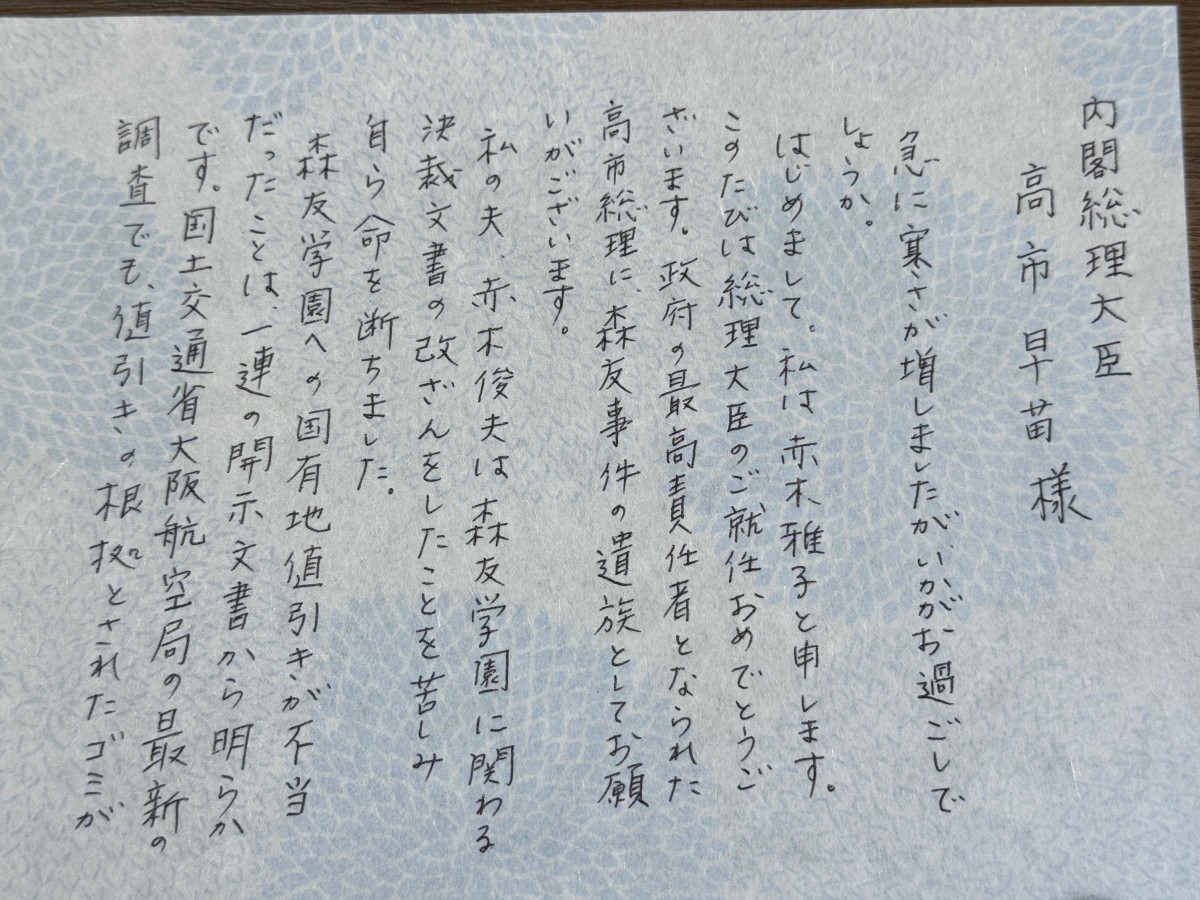 内閣総理大臣
高市早苗様
急に寒さが増しましたがいかがお過ごしで
しょうか。
はじめまして。私は赤木雅子と申します。
このたびは総理大臣のご就任おめでとうご
ざいます。政府の最高責任者となられた
高市総理に、森友事件の遺族としてお願
いがございます。
私の夫、赤木俊夫は森友学園に関わる
決裁文書の改ざんをしたことを苦しみ
自ら命を断ちました。
森友学園への国有地値引きが不当
だったことは、一連の開示文書から明らか
です。国土交通省大阪航空局の最新の
調査でも、値引きの根拠とされたゴミが